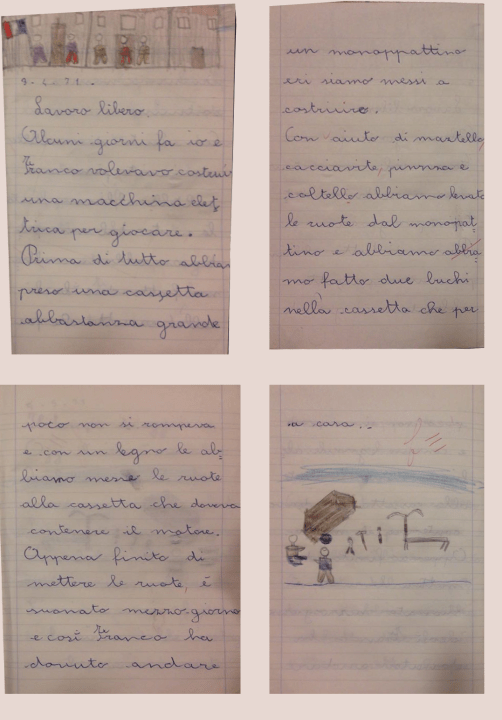 3.6.71.
Lavoro libero.
Alcuni giorni fa io e
Franco volevavo costuir
una macchina elet=
trica per giocare.
Prima di tutto abbiam
preso una cassetta
abbastanza grande
un monoppattino
e ci siamo messi a
costruire.
Con aiuto di martello
cacciavite, pinnza e
coltello abbiamo levato
le ruote dal monopat=
tino e abbiamo abbia=
mo fatto due buchi
nella cassetta che per
poco non si rompeva
e con un legno le ab=
biamo messe le ruote
alla cassetta che doveva
contenere il motore.
Appena finito di
mettere le ruote, è
suonato mezzo-giorno
e così Franco ha
dovuto andare
a casa...